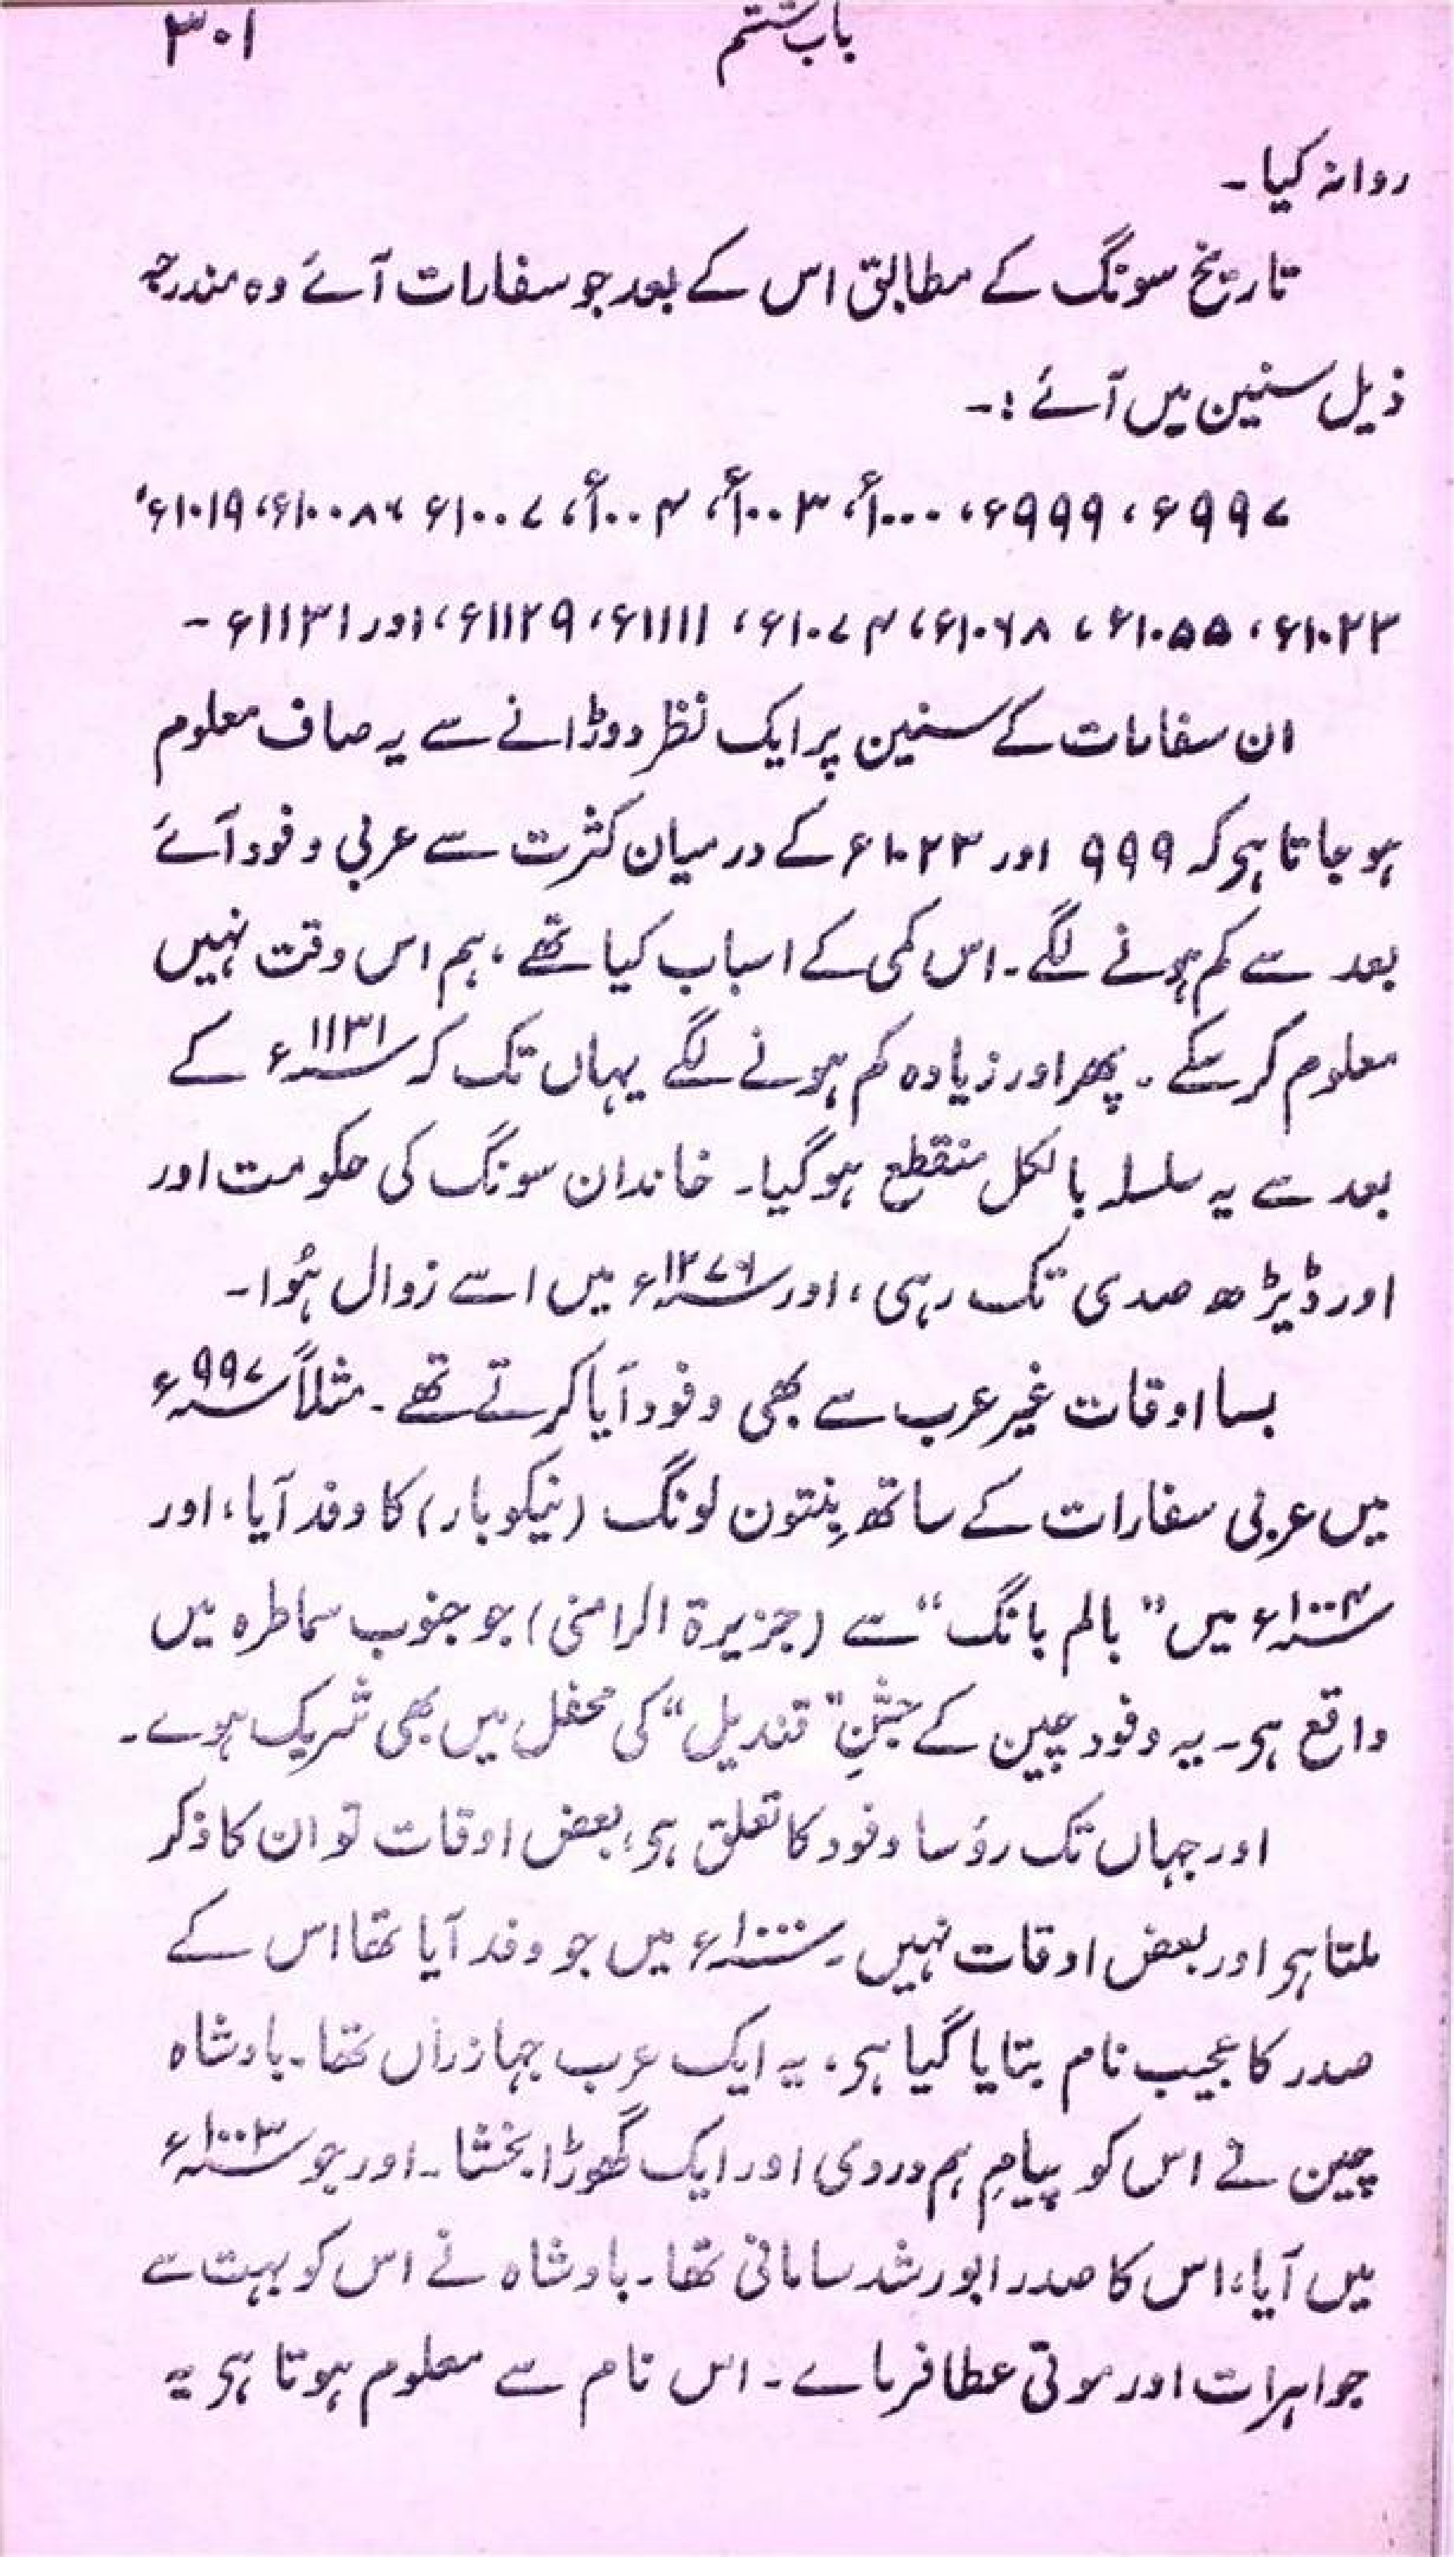 باب ششم ۳۰۱
روانہ کیا۔
تاریخ سونگ کے مطابق اس کے بعد جو سفارات آئے وہ مندرجہ
ذیل سنین میں آئے :۔
۹۹۷ء، ۹۹۹ء، ۱۰۰۰ء، ۱۰۰۳ء، ۱۰۰۴ء، ۱۰۰۷ء، ۱۰۰۸ء، ۱۰۱۹ء،
۱۰۲۳ء، ۱۰۵۵ء، ۱۰۶۸ء، ۱۰۷۴ء، ۱۱۱۱ء، ۱۱۲۹ء، اور ۱۱۳۱ء ۔
ان سفارات کے سنین پر ایک نظر دوڑانے سے یہ صاف معلوم
ہو جاتا ہی کہ ۹۹۹ اور ۱۰۲۳ء کے درمیان کثرت سے عربی وفود آئے
بعد سے کم ہونے لگے۔ اس کمی کے اسباب کیا تھے، ہم اس وقت نہیں
معلوم کر سکے۔ پھر اور زیادہ کم ہونے لگے یہاں تک کہ ۱۱۳۱ء کے
بعد سے یہ سلسلہ بالکل منقطع ہوگیا۔ خاندان سونگ کی حکومت اور
اور ڈیڑھ صدی تک رہی، اور ۱۲۷۶ء میں اسے زوال ہُوا۔
بسا اوقات غیر عرب سے بھی وفود آیا کرتے تھے۔ مثلاً ۹۹۷ء
میں عربی سفارات کے ساتھ پنتون لونگ (نیکوبار) کا وفد آیا، اور
۱۰۰۴ء میں ”بالم بانگ“ سے (جزیرۃ الرامنی) جو جنوب سماطرہ میں
واقع ہی۔ یہ وفود چین کے جشنِ ”قندیل“ کی محفل میں بھی شریک ہوے۔
اور جہاں تک رؤسا وفود کا تعلق ہی، بعض اوقات تو ان کا ذکر
ملتا ہی اور بعض اوقات نہیں۔ ۱۰۰۰ء میں جو وفد آیا تھا اس کے
صدر کا عجیب نام بتایا گیا ہی، یہ ایک عرب جہازراں تھا۔ بادشاہ
چین نے اس کو پیامِ ہم دردی اور ایک گھوڑا بخشا۔ اور جو ۱۰۰۳ء
میں آیا، اس کا صدر ابو رشد سامانی تھا۔ بادشاہ نے اس کو بہت سے
جواہرات اور موتی عطا فرماے۔ اس نام سے معلوم ہوتا ہی یہ